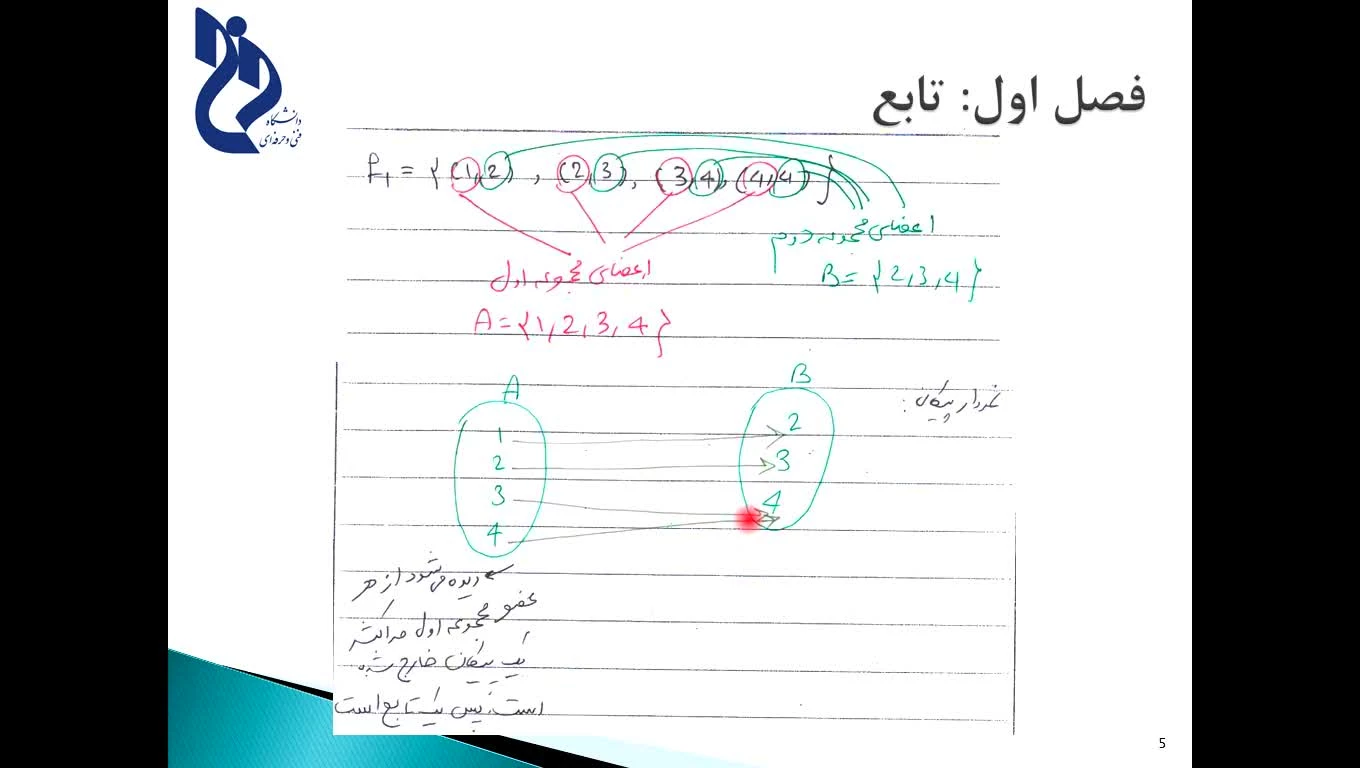 فصل اول: تابع
دانشگاه
فنی و حرفه‌ای
f₁ = {(1,2) , (2,3), (3,4), (4,4)}
اعضای مجموعه دوم
B = {2,3,4}
اعضای مجموعه اول
A = {1,2,3,4}
نمودار پیکانی:
A
B
1
2
3
4
2
3
4
دیده می‌شود از هر
عضو مجموعه اول حداکثر
یک پیکان خارج شده
است، پس یک تابع است
5